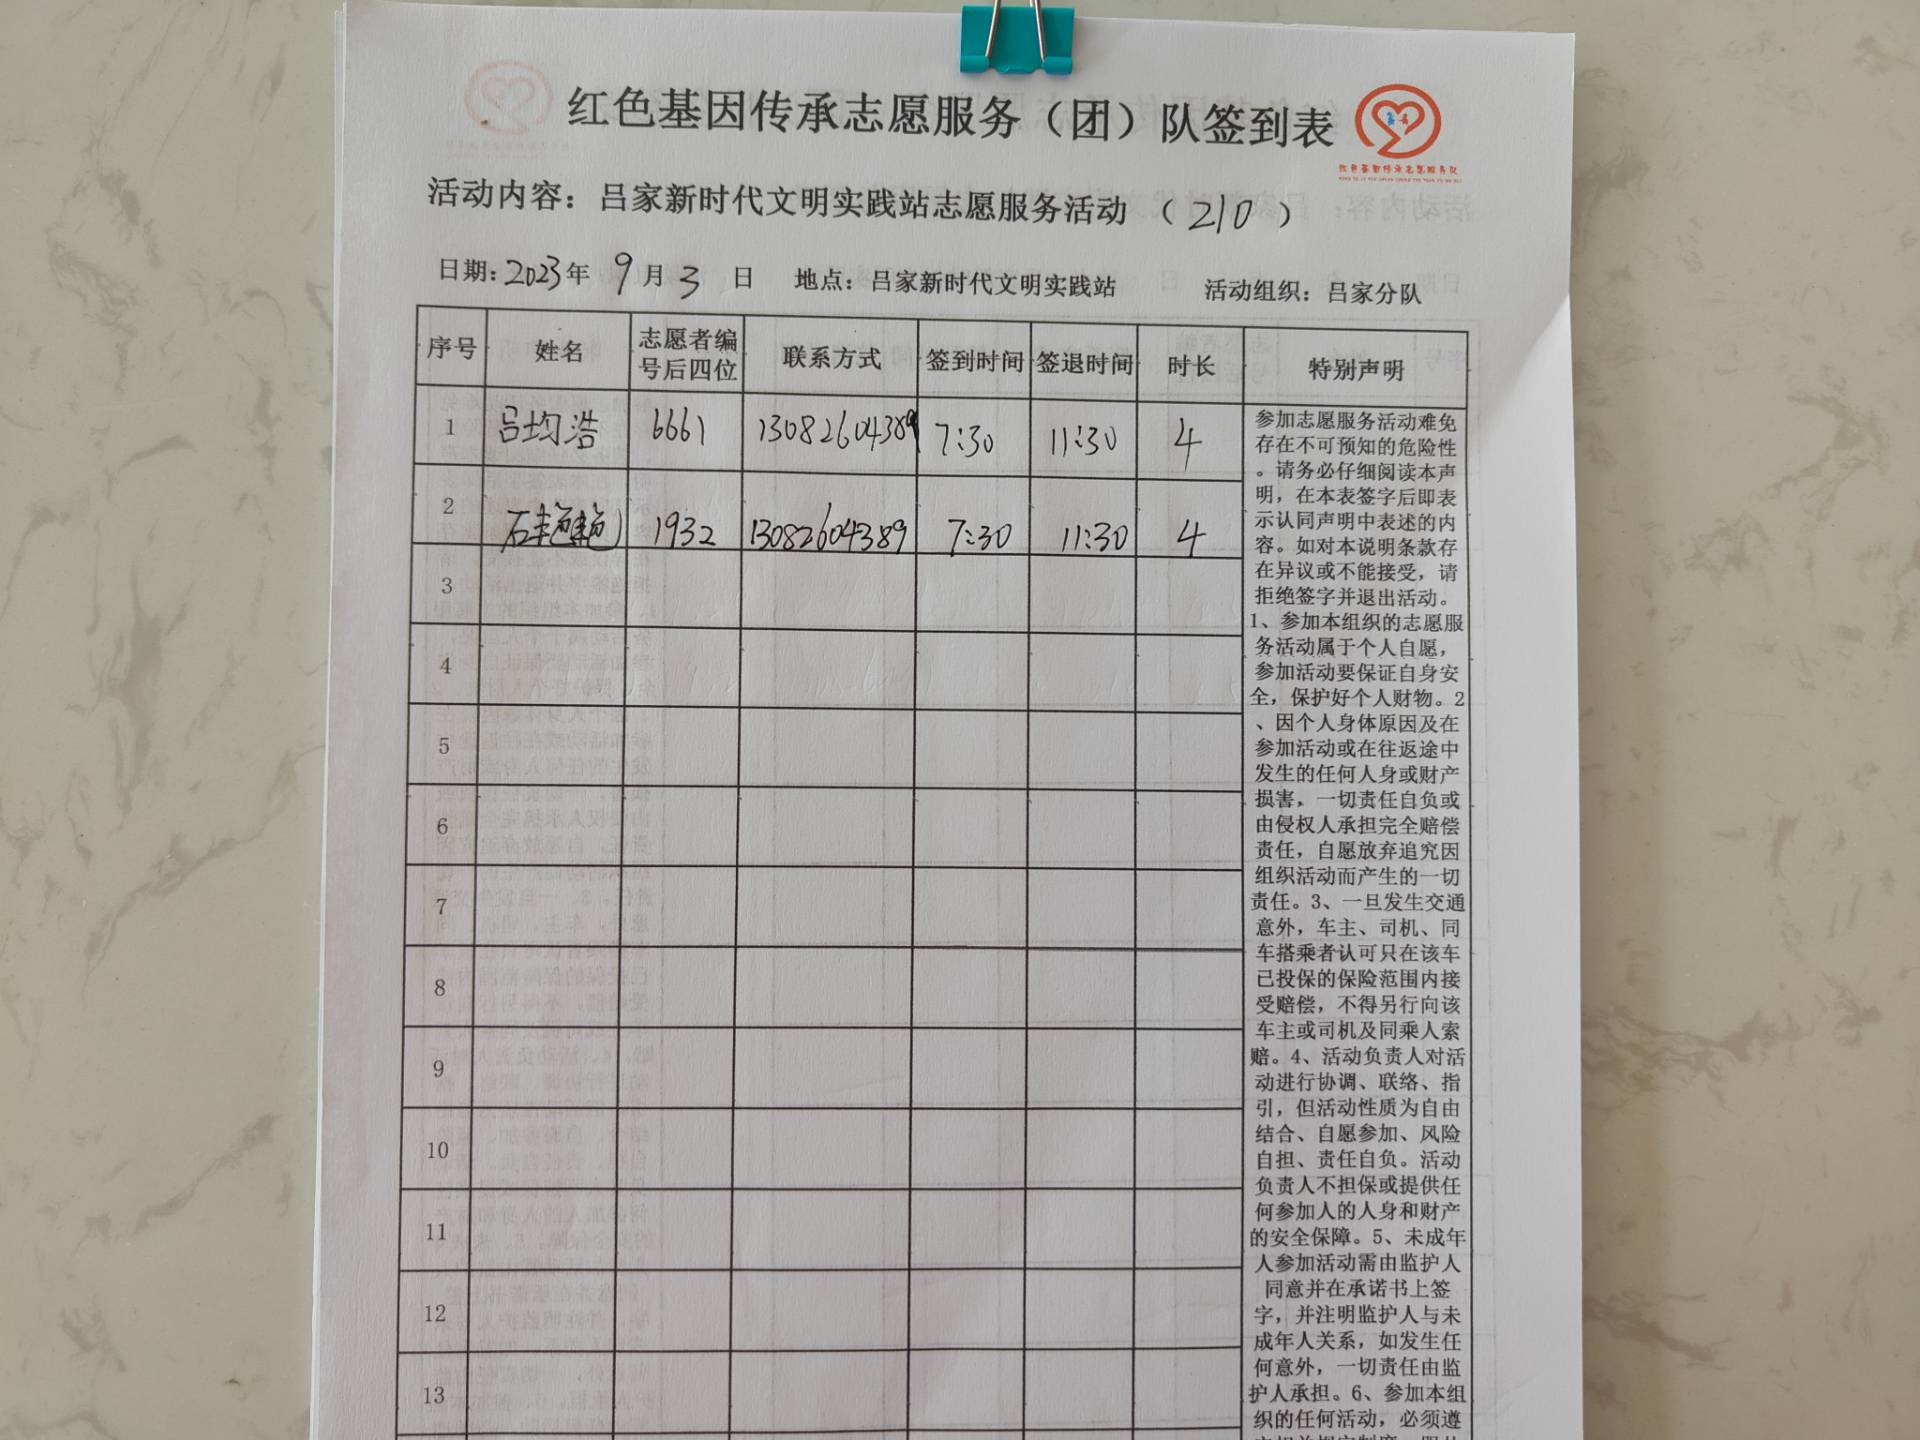 红色基因传承志愿服务（团）队签到表
红色基因传承志愿服务队
活动内容：吕家新时代文明实践站志愿服务活动（210）
日期：2023年9月3日 地点：吕家新时代文明实践站 活动组织：吕家分队
序号 姓名 志愿者编号后四位 联系方式 签到时间 签退时间 时长 特别声明
1 吕均浩 6661 13082604389 7:30 11:30 4
2 石艳艳 1932 13082604389 7:30 11:30 4
3
4
5
6
7
8
9
10
11
12
13
参加志愿服务活动难免
存在不可预知的危险性
。请务必仔细阅读本声
明，在本表签字后即表
示认同声明中表述的内
容。如对本说明条款存
在异议或不能接受，请
拒绝签字并退出活动。
1、参加本组织的志愿服
务活动属于个人自愿，
参加活动要保证自身安
全，保护好个人财物。2
、因个人身体原因及在
参加活动或在往返途中
发生的任何人身或财产
损害，一切责任自负或
由侵权人承担完全赔偿
责任，自愿放弃追究因
组织活动而产生的一切
责任。3、一旦发生交通
意外，车主、司机、同
车搭乘者认可只在该车
已投保的保险范围内接
受赔偿，不得另行向该
车主或司机及同乘人索
赔。4、活动负责人对活
动进行协调、联络、指
引，但活动性质为自由
结合、自愿参加、风险
自担、责任自负。活动
负责人不担保或提供任
何参加人的人身和财产
的安全保障。5、未成年
人参加活动需由监护人
同意并在承诺书上签
字，并注明监护人与未
成年人关系，如发生任
何意外，一切责任由监
护人承担。6、参加本组
织的任何活动，必须遵